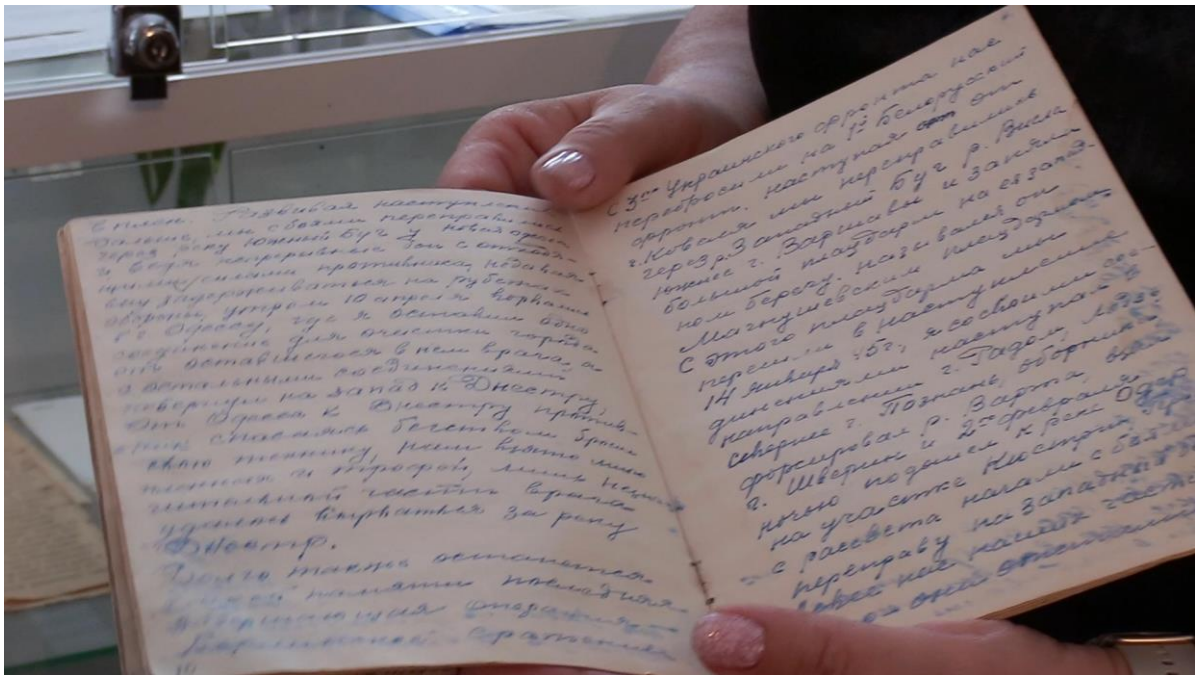 в плен. Развивая наступление
дальше, мы с боями переправились
через реку Южный Буг у Новая Одесса
и ведя непрерывные бои с отходя-
щими силами противника, не давая
ему задерживаться на рубежах
обороны, утром 10 апреля ворвались
в г. Одессу, где я оставил одно
соединение для очистки города
от оставшегося в нем врага, а
с остальными соединениями
повернул на запад к Днестру,
От Одессы к Днестру против-
ник спасаясь бегством бросил
свою технику, нами взято много
пленных и трофей, лишь незна-
чительной части врага
удалось вырваться за реку
Днестр.
Долго также останутся
в моей памяти последняя
завершающая операция
Берлинское сражение
10
С 3го Украинского фронта нас
перебросили на 1й Белорусский
фронт, наступая от
г. Ковеля мы переправились
через р. Западный Буг р. Висла
южнее г. Варшавы и заняли
большой плацдарм на её запад-
ном берегу. Назывался он
Магнушевским плацдармом
С этого плацдарма мы
перешли в наступление
14 января 45г., я со своими сое-
динениями наступал в
направлении г. Радом, Лодзь
севернее г. Познань, оборники
форсировал р. Варта, взял
г. Шверин и 2го февраля
ночью подошел к реке Одер
на участке Кюстрин,
с рассвета начали с боями
переправу на западный
наших частей